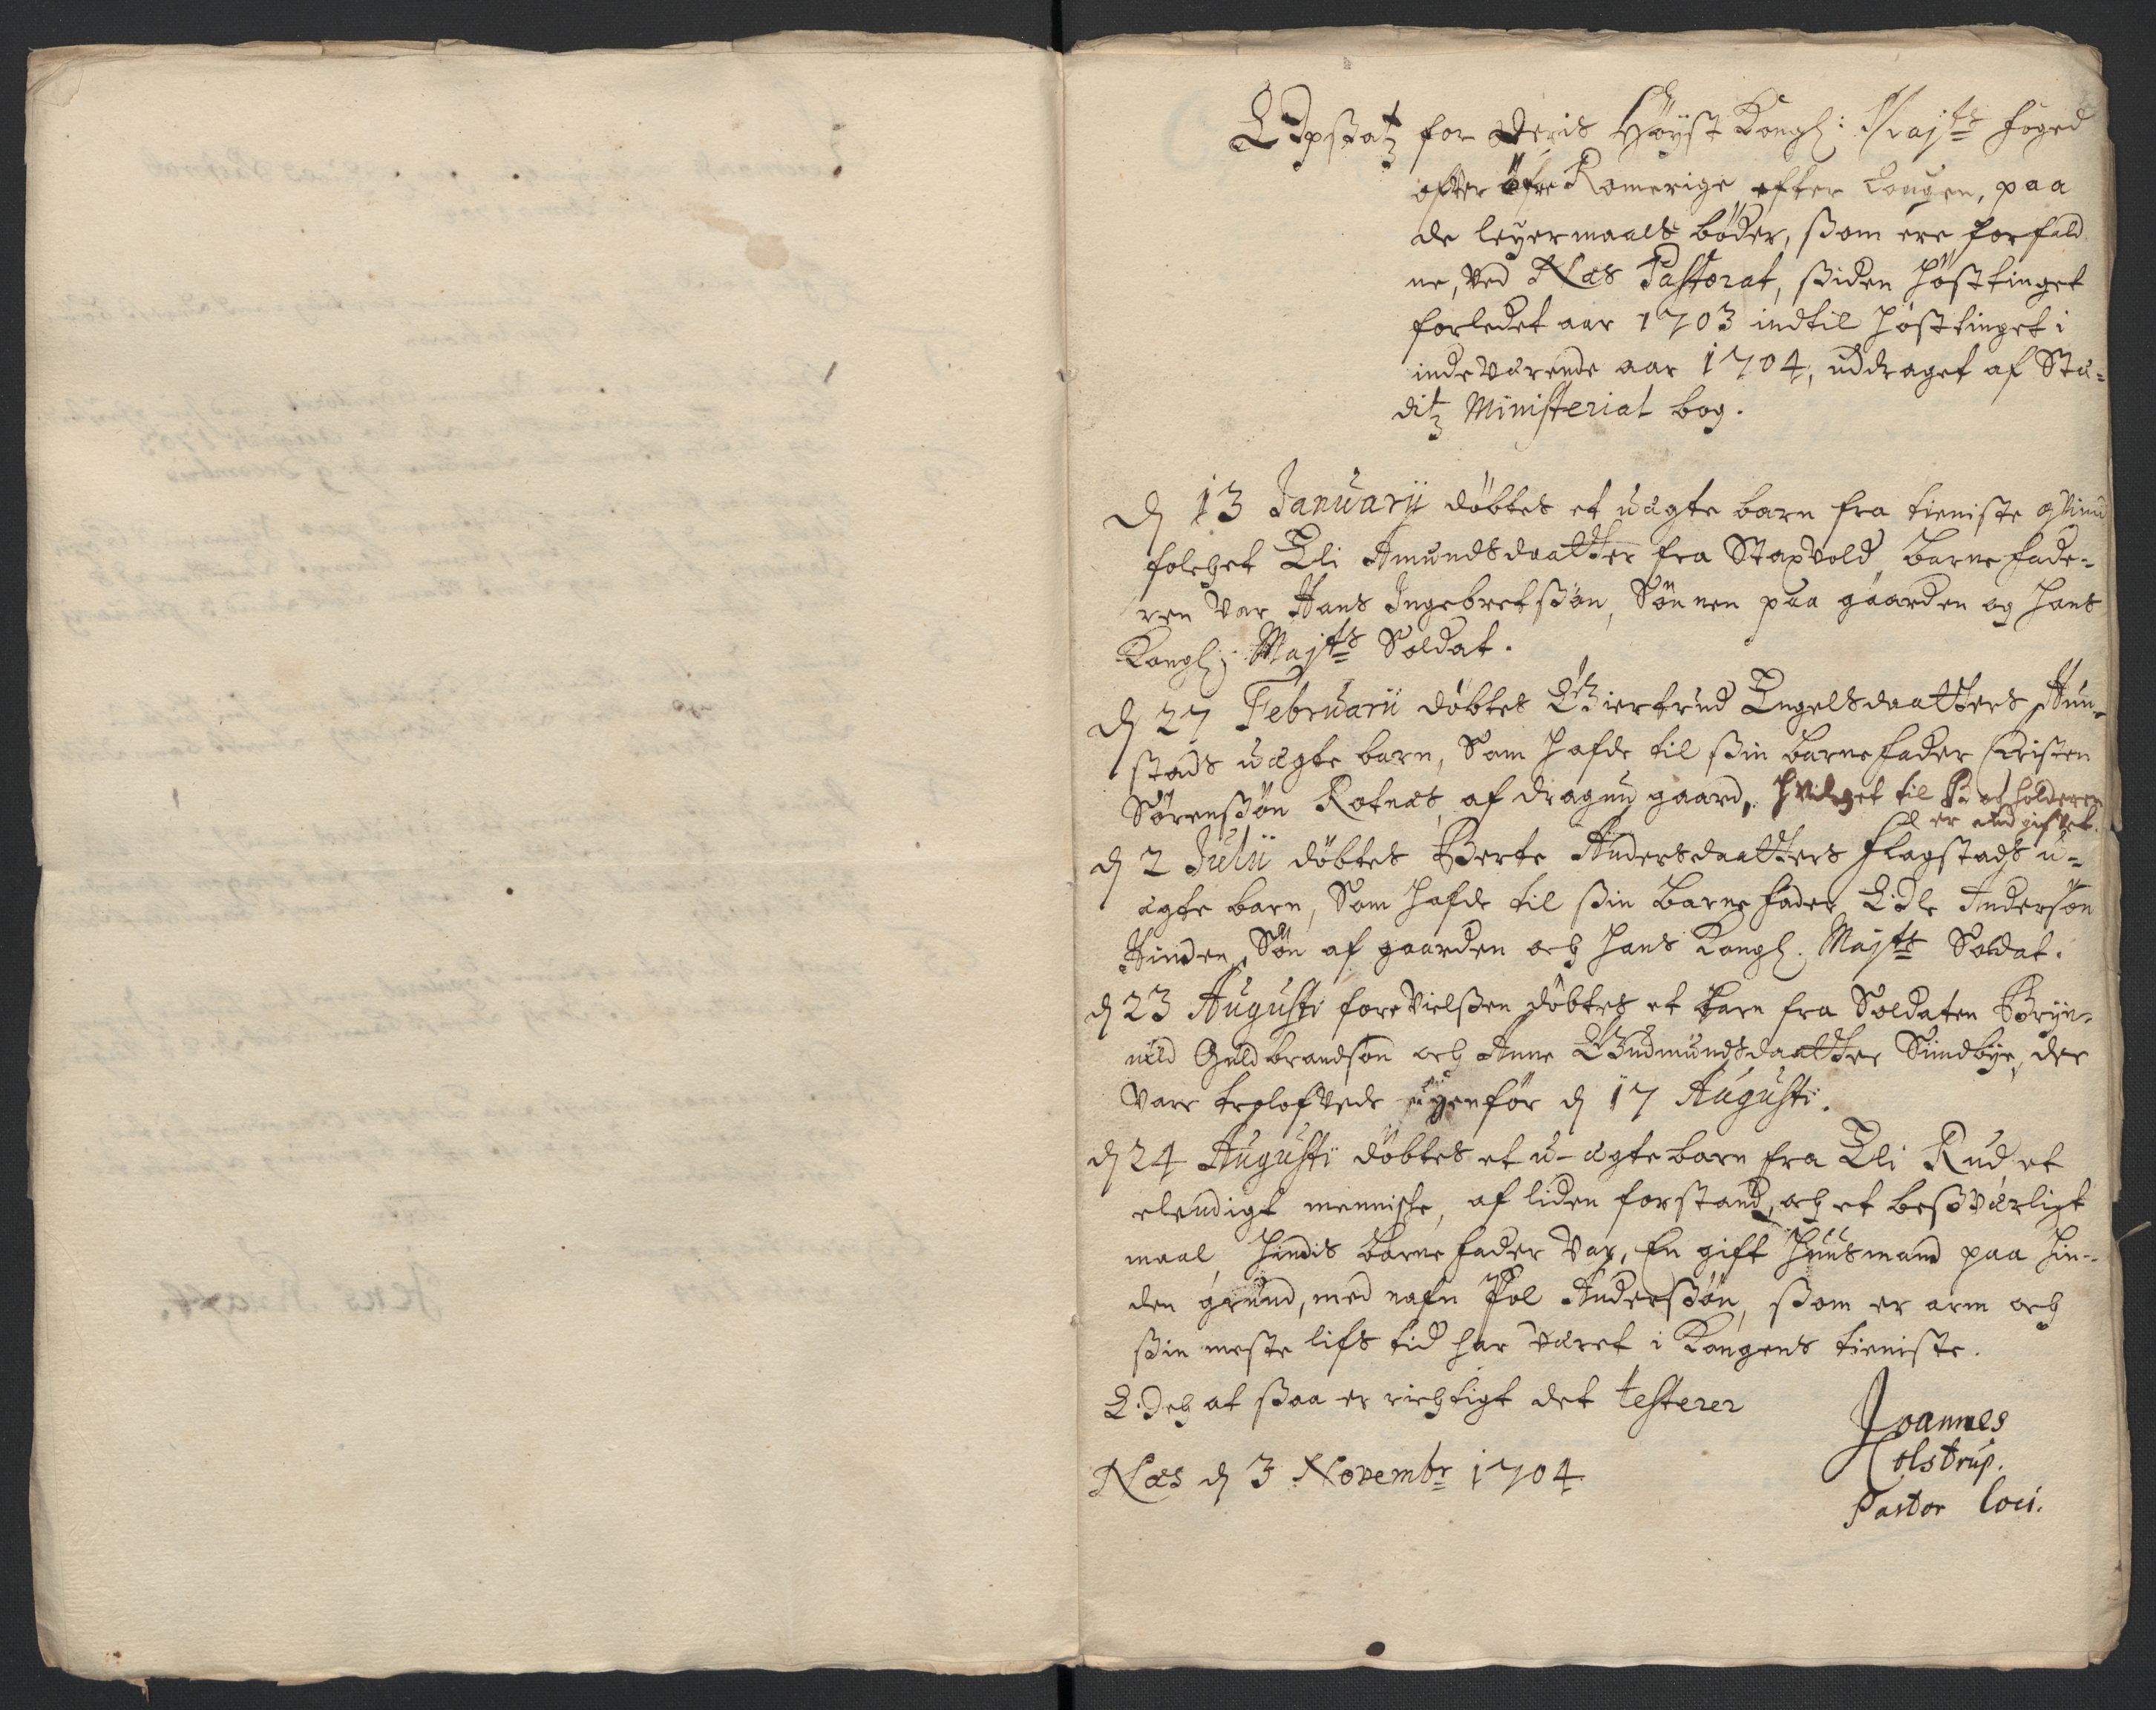 Opsatz for Deris Höyst Kongl: Majts foged
ofver öfre Romerige, efter Lougen, paa
de leyermaals bøder, ßom ere forfald
ne, ved Næs Pastorat, ßiden Høsttinget
forledet aar 1703 indtil Høsttinget i
indeværende aar 1704, uddraget af Stæ-
ditz Ministerial bog.
d 13 Januarij döbtes et uægte barn fra tieniste qvind
folchet Eli Amundsdaatter fra Staxvold, barnefade-
ren var Hans Ingebretßøn, Sönnen paa gaarden og Hans
Kongl: Majts Soldat.
d 27 Februarii döbtes Giertrud Engelsdaatters Aun-
stads uægte barn, Som hafde til ßin barnefader Cristen
Sørenßøn Rotnæs, af dragun gaard, hvilcket til B og holderen
er aud gifvet.
d 2 Julii döbtes Berte Andersdaatters Flagstads u-
ægte barn, Som hafde til ßin barnefader Ole Anderson
Hinden, Søn af gaarden och Hans Kongl. Majts Soldat.
d 23 Augusti fore vielßen döbtes et barn fra Soldaten Bryn-
nild Guldbrandson och Anne Gudmundsdaatter Sundbye, der
vare trolofvede igienför d 17 Augusti.
d 24 Augusti döbtes et u-ægte barn fra Eli Rud et
elendigt menniske, af liden forstand, och et beßværligt
maal, Hindis barnefader var, En gift Huusmand paa Hin-
den grund, med nafn Pol Anderßøn, ßom er arm och
ßin meste lifs tid har været i Kongens tieniste.
Och at ßaa er richtigt det testerer
Joannes
Colstrup.
Pastor loci.
Næs d 3 Novembr 1704